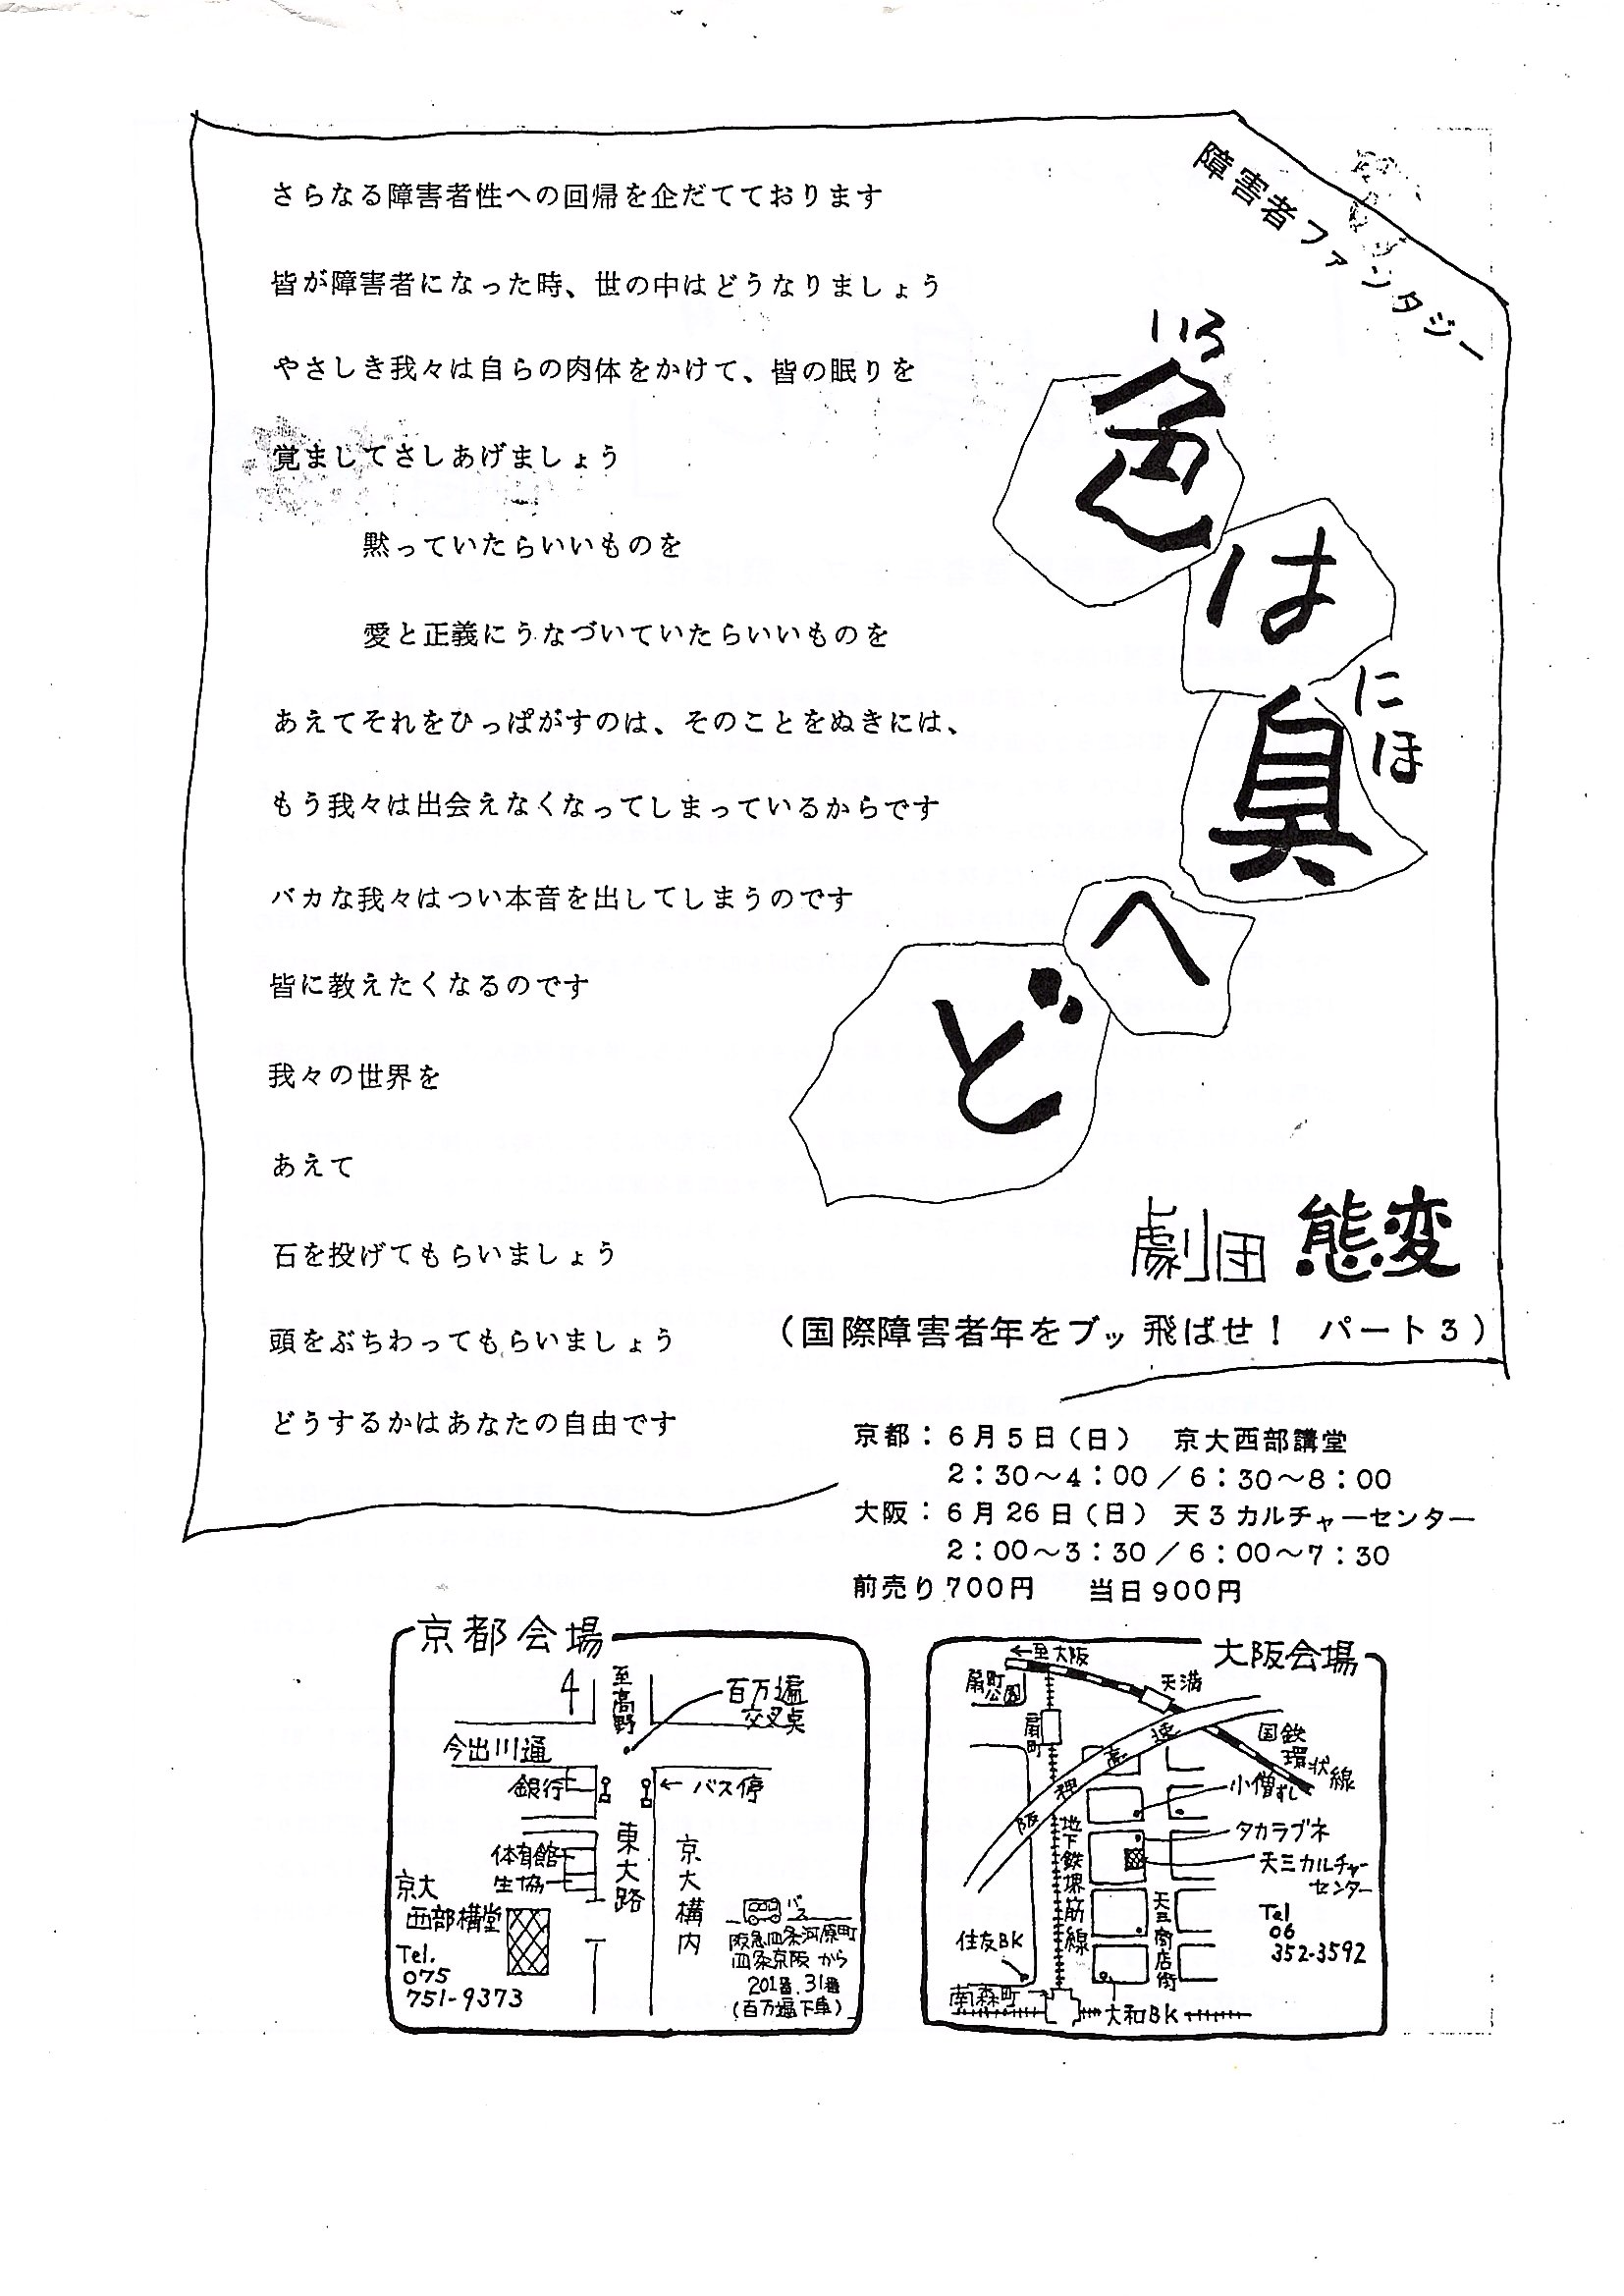 障害者ファンタジー
いろ
色
は
にほ
臭
へ
ど
劇団 態変
(国際障害者年をブッ飛ばせ! パート3)
さらなる障害者性への回帰を企だてております
皆が障害者になった時、世の中はどうなりましょう
やさしき我々は自らの肉体をかけて、皆の眠りを
覚ましてさしあげましょう
黙っていたらいいものを
愛と正義にうなづいていたらいいものを
あえてそれをひっぱがすのは、そのことをぬきには、
もう我々は出会えなくなってしまっているからです
バカな我々はつい本音を出してしまうのです
皆に教えたくなるのです
我々の世界を
あえて
石を投げてもらいましょう
頭をぶちわってもらいましょう
どうするかはあなたの自由です
京都:6月5日(日) 京大西部講堂
2:30~4:00/6:30~8:00
大阪:6月26日(日) 天3カルチャーセンター
2:00~3:30/6:00~7:30
前売り700円 当日900円
京都会場
至高野
百万遍
交叉点
今出川通
銀行
← バス停
体育館
生協
東大路
京大構内
京大
西部構堂
Tel.
075
751-9373
バス
阪急四条河原町
四条京阪から
201番.31番
(百万遍下車)
大阪会場
←至大阪
扇町
公園
天満
扇町
阪神高速
国鉄
環状線
小僧ずし
タカラブネ
天三カルチャー
センター
地下鉄堺筋線
天三商店街
Tel
06
352-3592
住友BK
南森町
大和BK